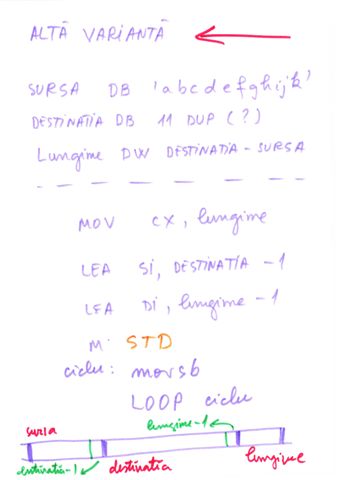 ALTĂ VARIANTĂ
SURSA DB 'abcdefghijk'
DESTINATIA DB 11 DUP (?)
Lungime DW DESTINATIA - SURSA
MOV CX, lungime
LEA SI, DESTINATIA -1
LEA DI, lungime -1
M: STD
ciclu: movsb
LOOP ciclu
sursa lungime-1
destinatia-1 destinatia lungime